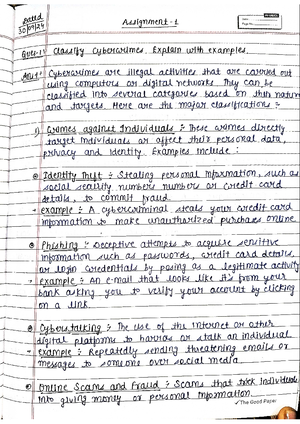 Dated
30/09/24
Assignment - 1
Ques-1: Classify Cybercrimes. Explain with examples.
Ans 1: Cybercrimes are illegal activities that are carried out
using computers or digital networks. They can be
classified into several categories based on their nature
and targets. Here are the major classifications :-
i) Crimes against Individuals :- These crimes directly
target individuals or affect their personal data,
privacy and identity. Examples include :
Identity Theft :- Stealing personal information, such as
social security numbers numbers or credit card
details, to commit fraud.
- example :- A cybercriminal steals your credit card
information to make unauthorized purchases online.
Phishing :- Deceptive attempts to acquire sensitive
information such as passwords, credit card details,
or login credentials by posing as a legitimate activity
- example :- An e-mail that looks like it's from your
bank asking you to verify your account by clicking
on a link.
Cyberstalking :- The use of the Internet or other
digital platforms to harass or stalk an individual.
- example :- Repeatedly sending threatening emails or
messages to someone over social media.
Online Scams and Fraud :- Scams that trick individuals
into giving money or personal information.
The Good Paper